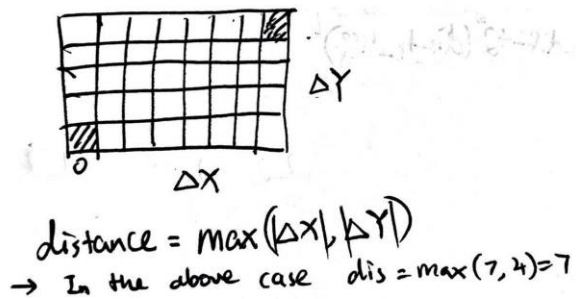 ΔY
0
ΔX
distance = max(|ΔX|, |ΔY|)
→ In the above case dis = max(7,4)=7